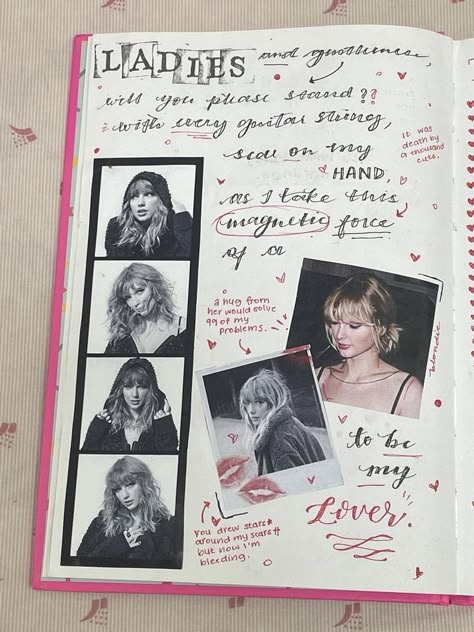 LADIES and gentlemen,
will you please stand??
with every guitar string,
scar on my
HAND,
as I take this
magnetic force
of a
it was
death by
a thousand
cuts.
a hug from
her would solve
99 of my
problems.
blondie
to be
my
Lover.
you drew stars★
around my scars††
but now i'm
bleeding.